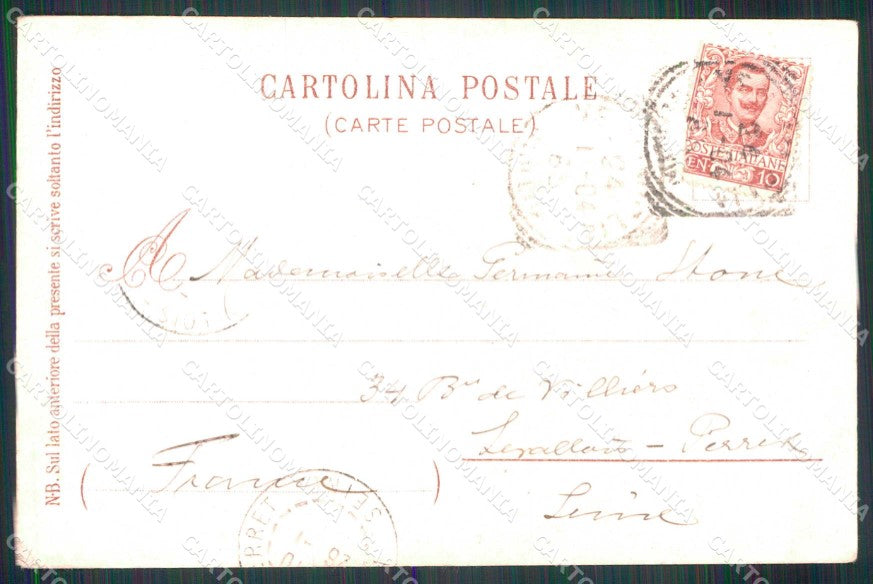 CARTOLINA POSTALE
(CARTE POSTALE)
POSTE ITALIANE
CEN. 10
N.B. Sul lato anteriore della presente si scrive soltanto l'indirizzo
A Mademoiselle Germaine Stone
34 Bd de Villiers
Levallois-Perret
(France)
Seine
CARTOLINOMANIA